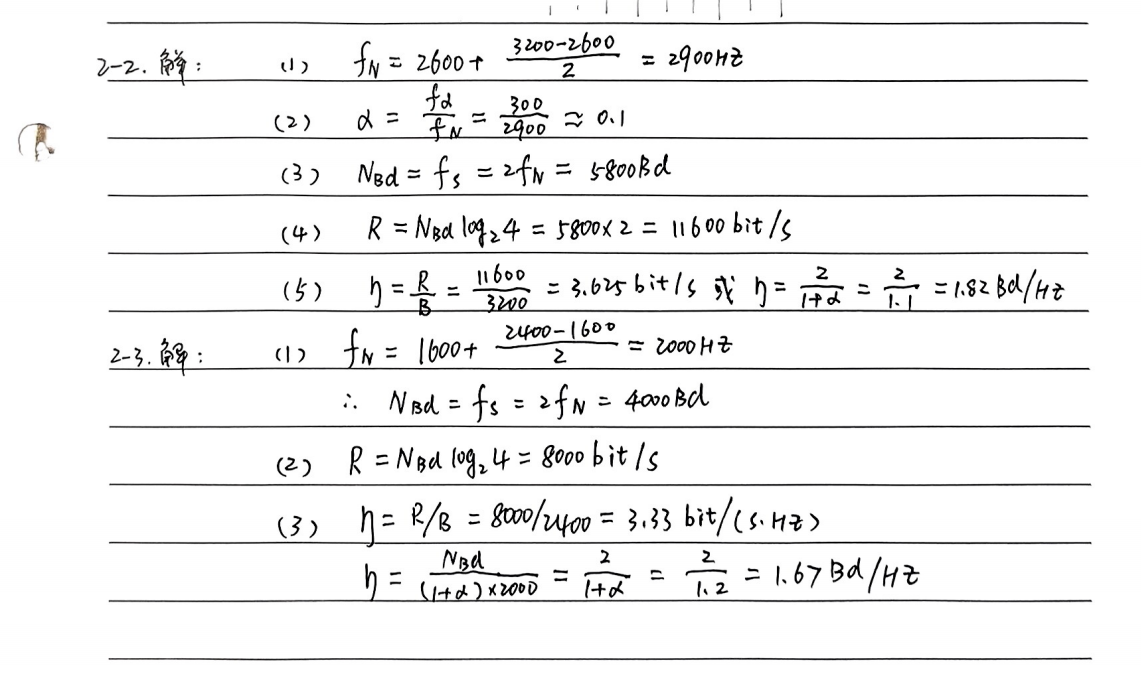 2-2. 解: (1) f_N = 2600 + (3200-2600)/2 = 2900HZ
(2) α = f_α/f_N = 300/2900 ≈ 0.1
(3) N_Bd = f_s = 2f_N = 5800Bd
(4) R = N_Bd log_2 4 = 5800×2 = 11600 bit/s
(5) η = R/B = 11600/3200 = 3.625 bit/s 或 η = 2/(1+α) = 2/1.1 = 1.82 Bd/HZ
2-3. 解: (1) f_N = 1600 + (2400-1600)/2 = 2000HZ
∴ N_Bd = f_s = 2f_N = 4000Bd
(2) R = N_Bd log_2 4 = 8000 bit/s
(3) η = R/B = 8000/2400 = 3.33 bit/(s·HZ)
η = N_Bd/((1+α)×2000) = 2/(1+α) = 2/1.2 = 1.67 Bd/HZ